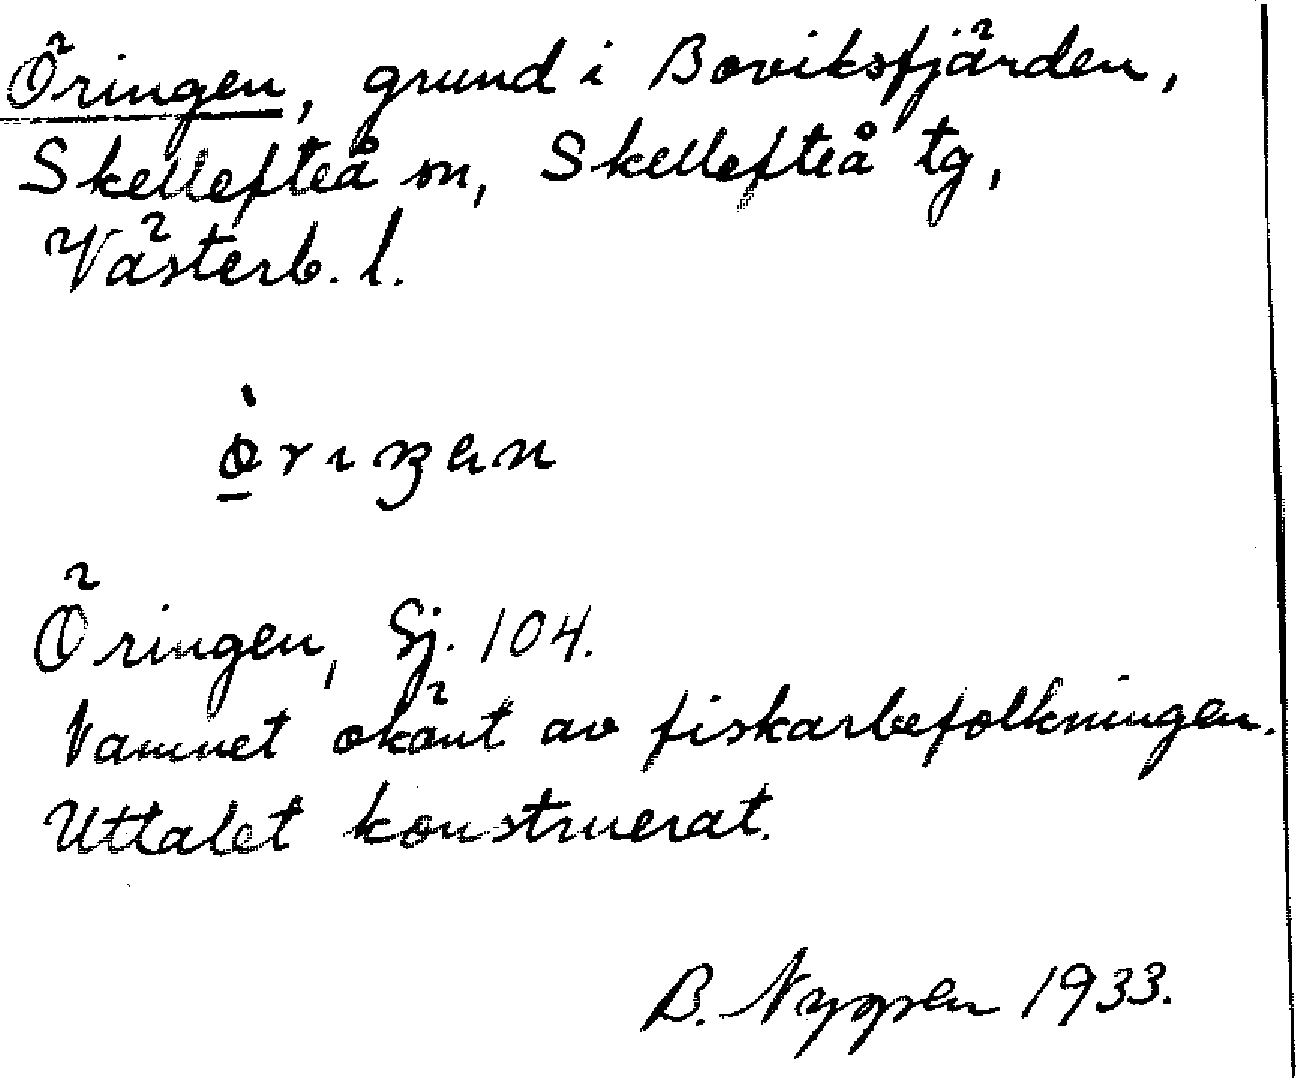 Öringen, grund i Boviksfjärden,
Skellefteå sn, Skellefteå tg,
Västerb. l.
Öringen, Sj. 104.
Namnet okänt av fiskarbefolkningen.
Uttalet konstruerat.
B. Nygren 1933.